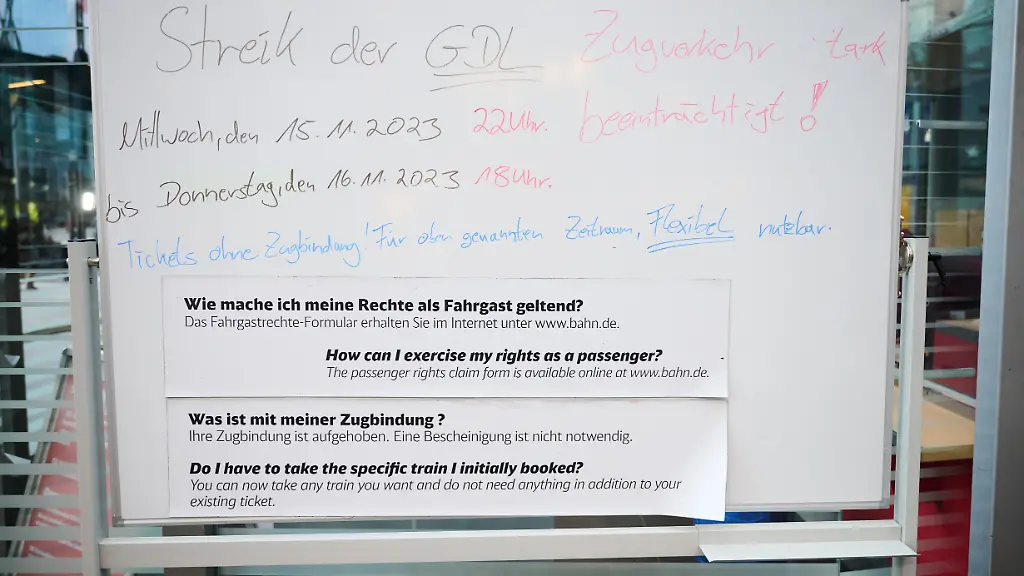 Streik der GDL Zugverkehr stark
Mittwoch, den 15.11.2023 22Uhr. beeinträchtigt!
bis Donnerstag, den 16.11.2023 18Uhr.
Tickets ohne Zugbindung! Für oben genannten Zeitraum, Flexibel nutzbar.
Wie mache ich meine Rechte als Fahrgast geltend?
Das Fahrgastrechte-Formular erhalten Sie im Internet unter www.bahn.de.
How can I exercise my rights as a passenger?
The passenger rights claim form is available online at www.bahn.de.
Was ist mit meiner Zugbindung ?
Ihre Zugbindung ist aufgehoben. Eine Bescheinigung ist nicht notwendig.
Do I have to take the specific train I initially booked?
You can now take any train you want and do not need anything in addition to your
existing ticket.